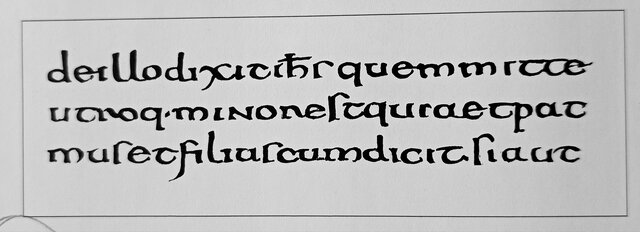 deillodixitih̄squemmitte
utnoq·minonestquiaetpat
musetfiliascumdicitsiaut